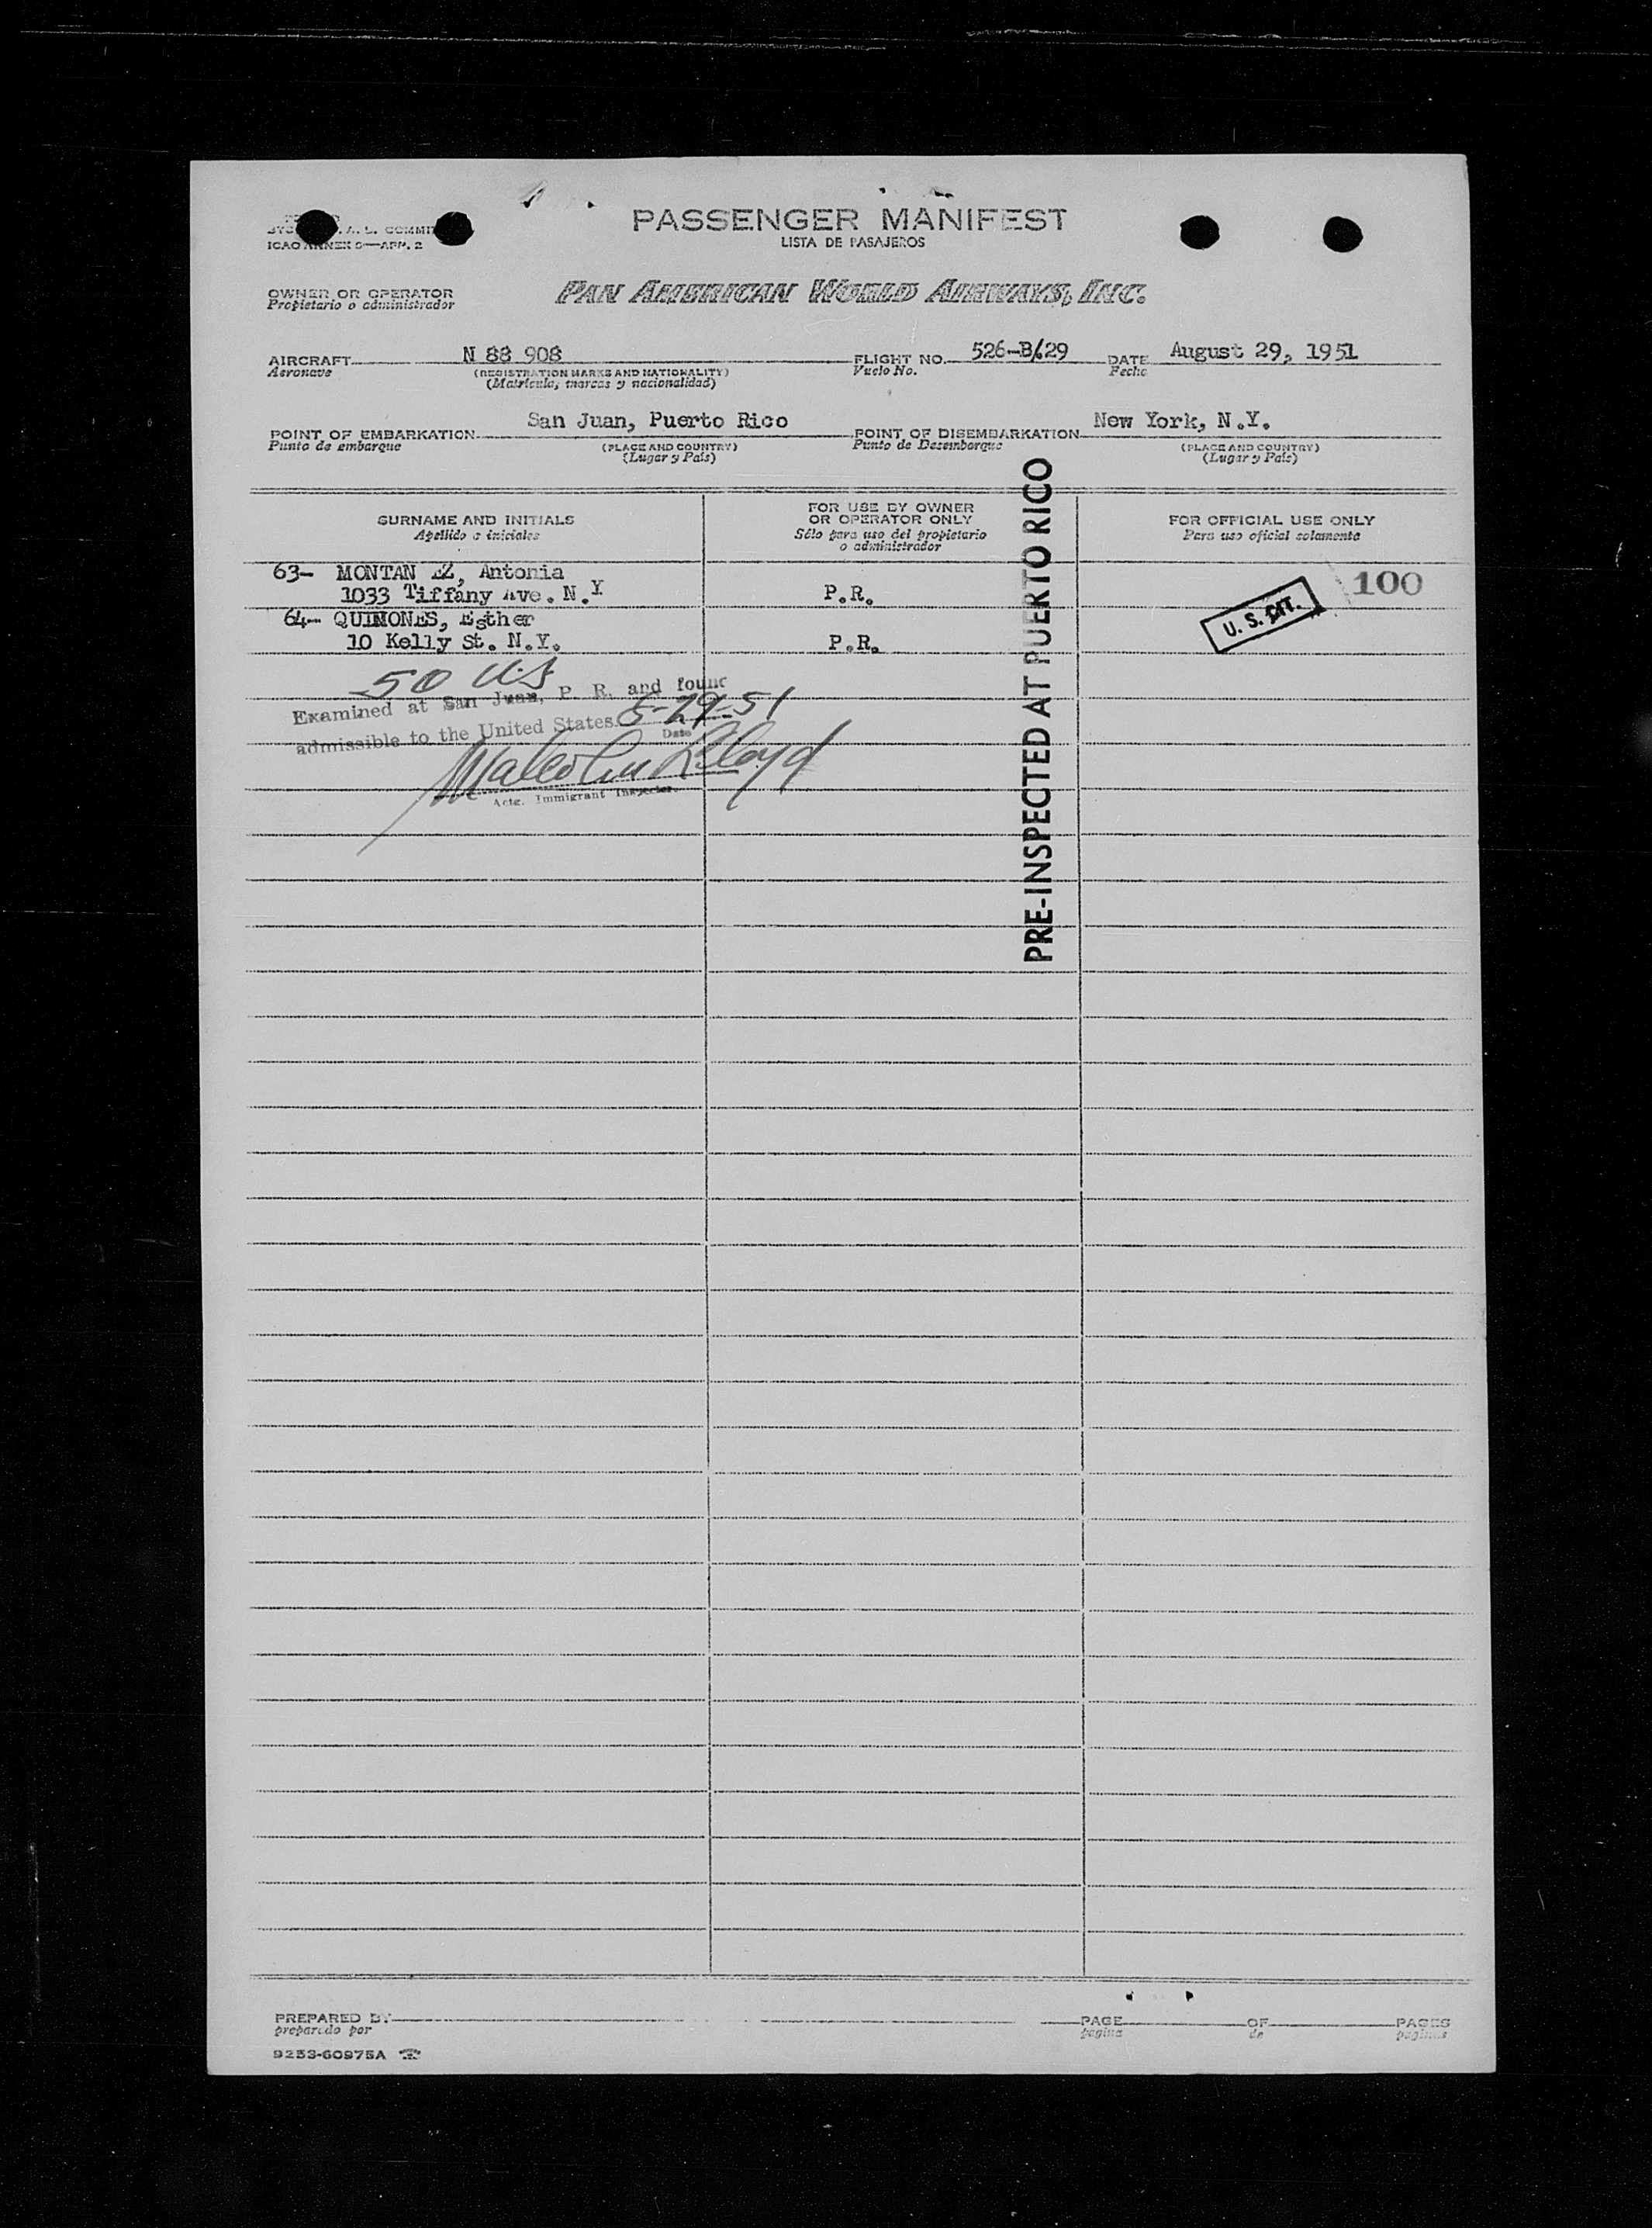 A. L. COMMIT
ICAO ANNEX 9—APP. 2
PASSENGER MANIFEST
LISTA DE PASAJEROS
OWNER OR OPERATOR
Propietario o administrador
PAN AMERICAN WORLD AIRWAYS, INC.
AIRCRAFT N 88 908 FLIGHT NO. 526-B/629 DATE August 29, 1951
Aeronave (REGISTRATION MARKS AND NATIONALITY) Vuelo No. Fecha
(Matrícula, marcas y nacionalidad)
POINT OF EMBARKATION San Juan, Puerto Rico POINT OF DISEMBARKATION New York, N.Y.
Punto de embarque (PLACE AND COUNTRY) Punto de Desembarque (PLACE AND COUNTRY)
(Lugar y País) (Lugar y País)
SURNAME AND INITIALS FOR USE BY OWNER OR OPERATOR ONLY FOR OFFICIAL USE ONLY
Apellido e iniciales Sólo para uso del propietario o administrador Para uso oficial solamente
63- MONTAN EZ, Antonia 100
1033 Tiffany Ave. N.Y P.R.
U. S. CIT.
64- QUINONES, Esther
10 Kelly St. N.Y. P.R.
50 US
Examined at San Juan, P. R. and found
admissible to the United States 8-29-51
Date
Malcolm Lloyd
Actg. Immigrant Inspector.
PRE-INSPECTED AT PUERTO RICO
PREPARED BY PAGE OF PAGES
preparado por pagina de paginas
9253-60975A